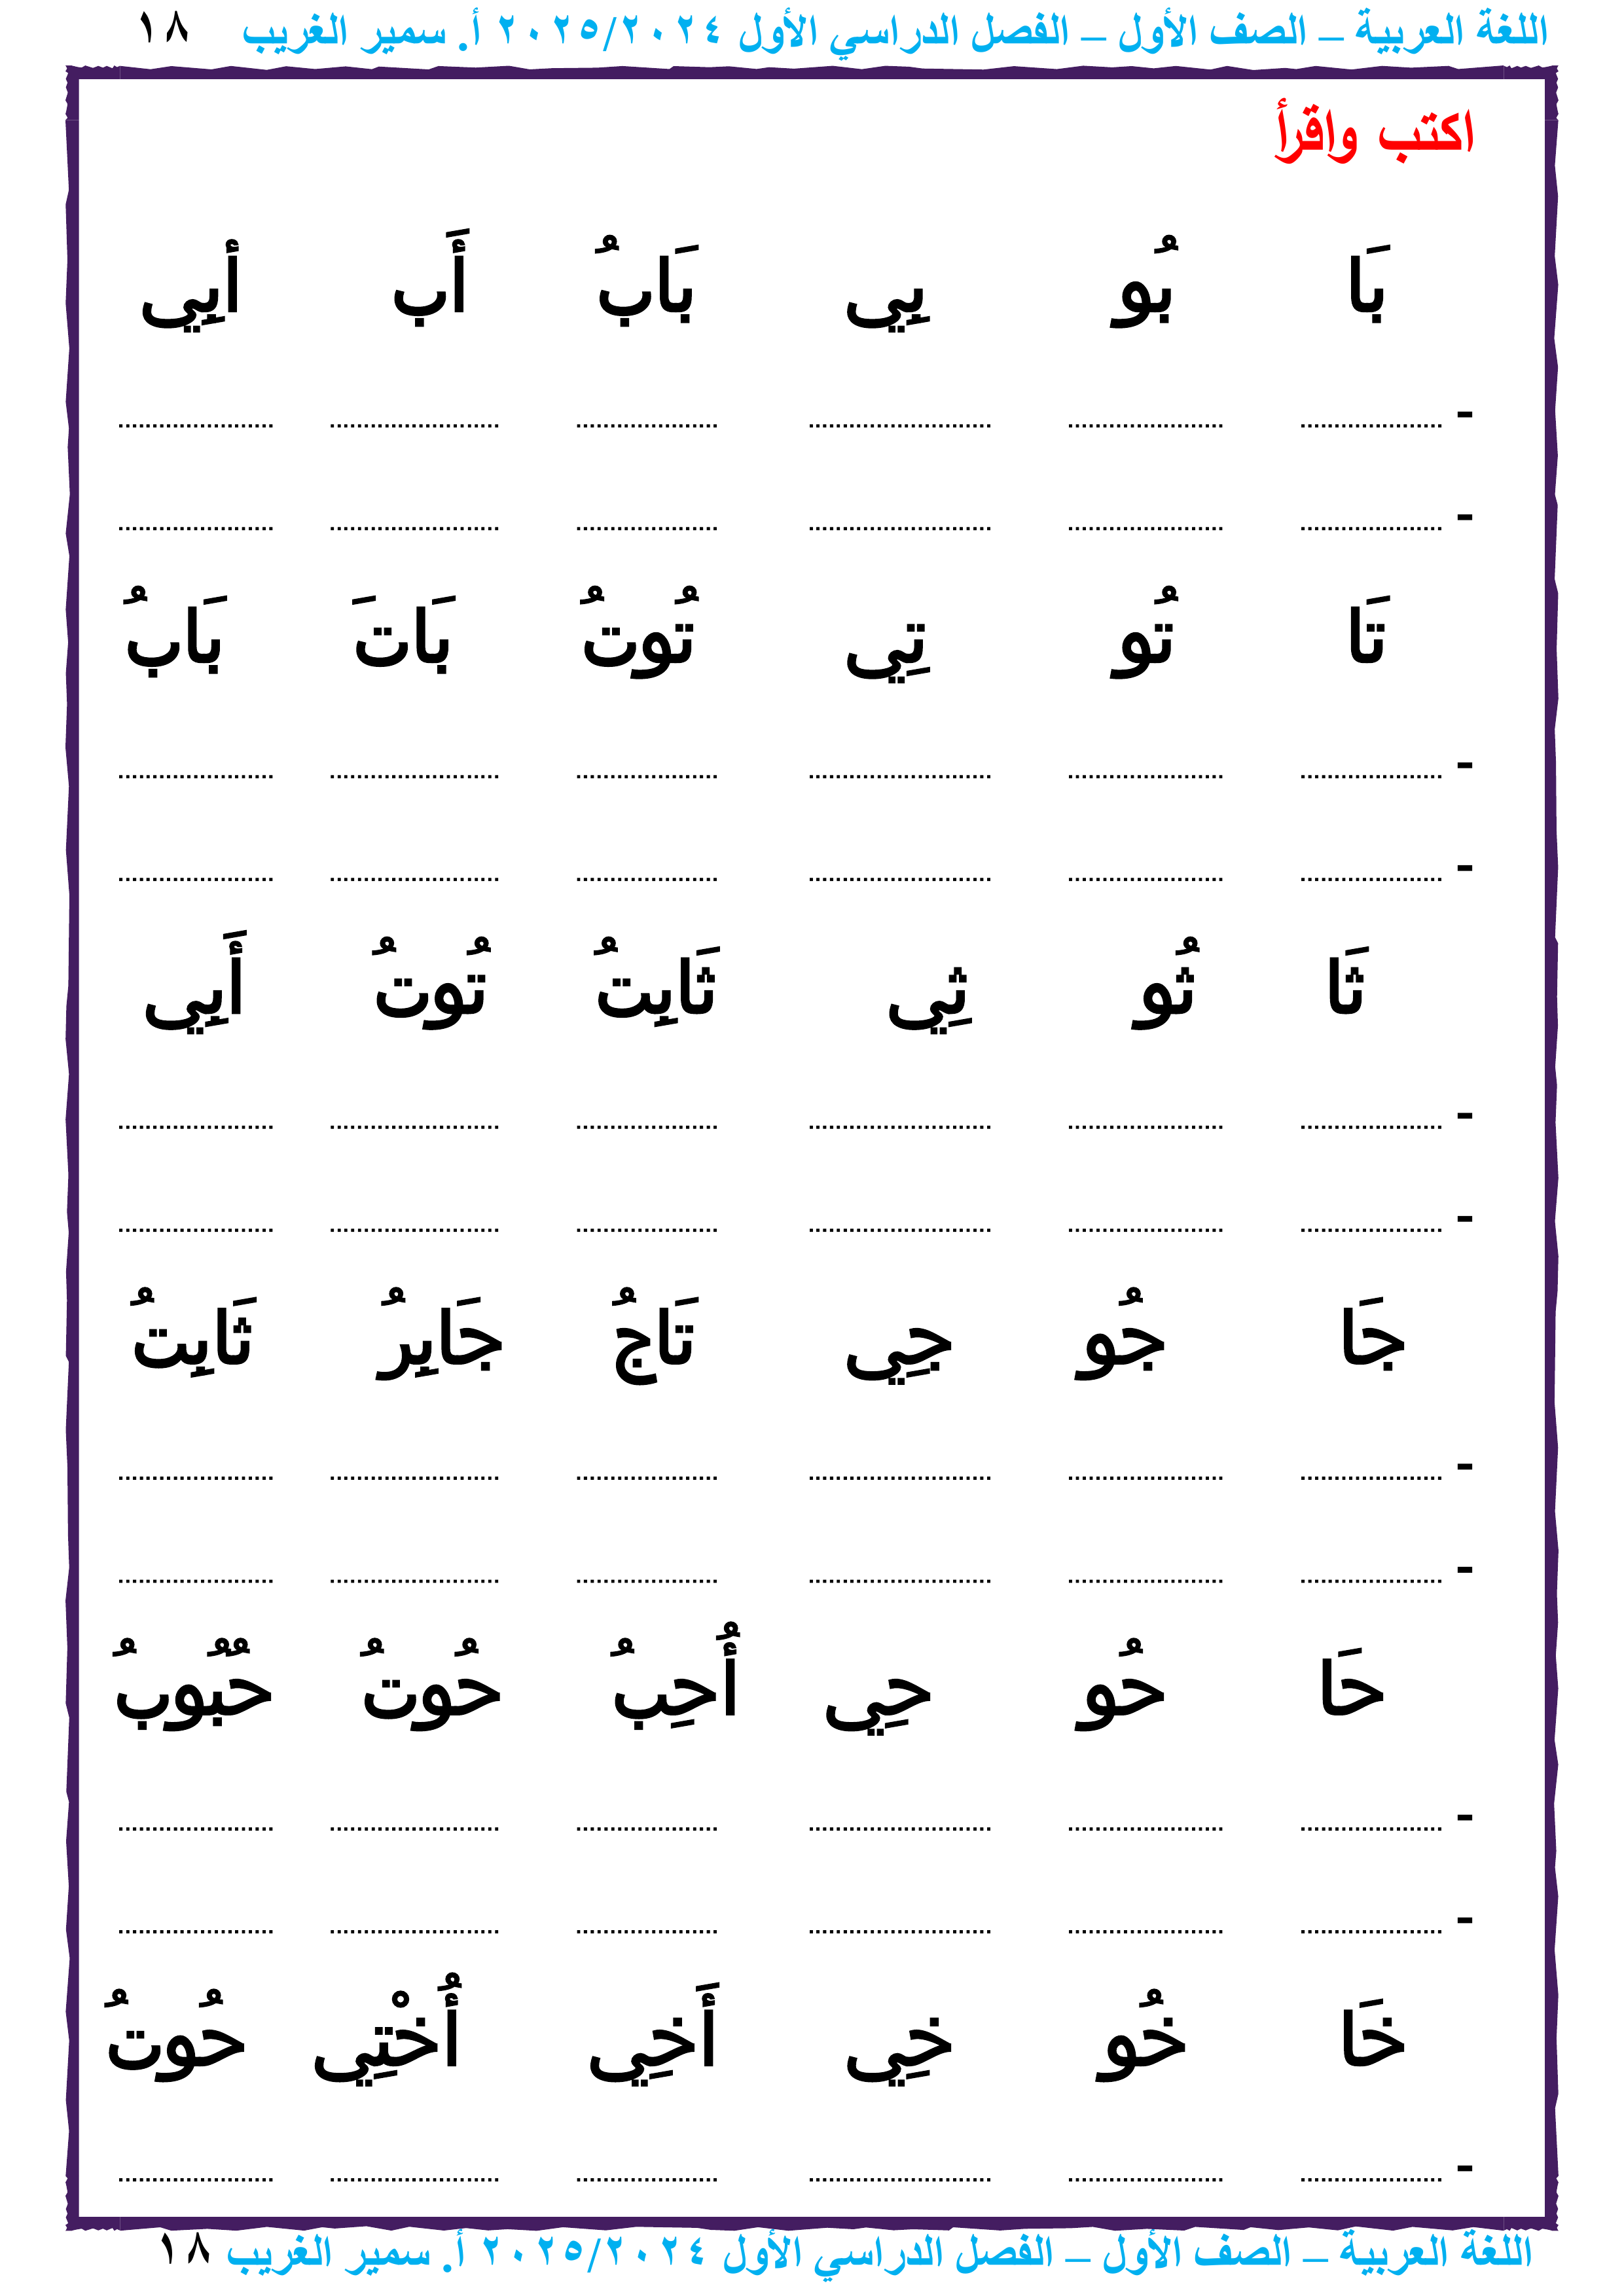 اللغة العربية – الصف الأول – الفصل الدراسي الأول ٢٠٢٥/٢٠٢٤ أ. سمير الغريب ١٨
اكتب واقرأ
بَا بُو بِي بَابُ أَب أبِي
- ........................ ........................ ........................ ........................ ........................ ........................
- ........................ ........................ ........................ ........................ ........................ ........................
تَا تُو تِي تُوتُ بَاتَ بَابُ
- ........................ ........................ ........................ ........................ ........................ ........................
- ........................ ........................ ........................ ........................ ........................ ........................
ثَا ثُو ثِي ثَابِتُ تُوتُ أَبِي
- ........................ ........................ ........................ ........................ ........................ ........................
- ........................ ........................ ........................ ........................ ........................ ........................
جَا جُو جِي تَاجُ جَابِرُ ثَابِتُ
- ........................ ........................ ........................ ........................ ........................ ........................
- ........................ ........................ ........................ ........................ ........................ ........................
حَا حُو حِي أُحِبُ حُوتُ حُبُوبُ
- ........................ ........................ ........................ ........................ ........................ ........................
- ........................ ........................ ........................ ........................ ........................ ........................
خَا خُو خِي أَخِي أُخْتِي حُوتُ
- ........................ ........................ ........................ ........................ ........................ ........................
اللغة العربية – الصف الأول – الفصل الدراسي الأول ٢٠٢٥/٢٠٢٤ أ. سمير الغريب ١٨